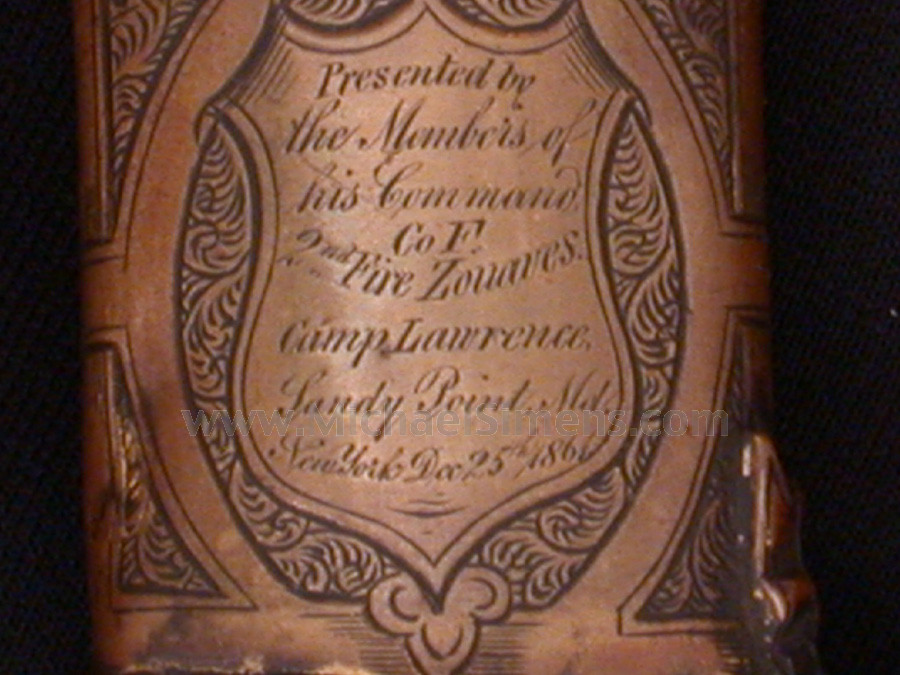 Presented by
the Members of
his Command.
Co F.
2nd Fire Zouaves.
Camp Lawrence.
Sandy Point Md.
www.michaelsimens.com
New York Dec 25th 1861